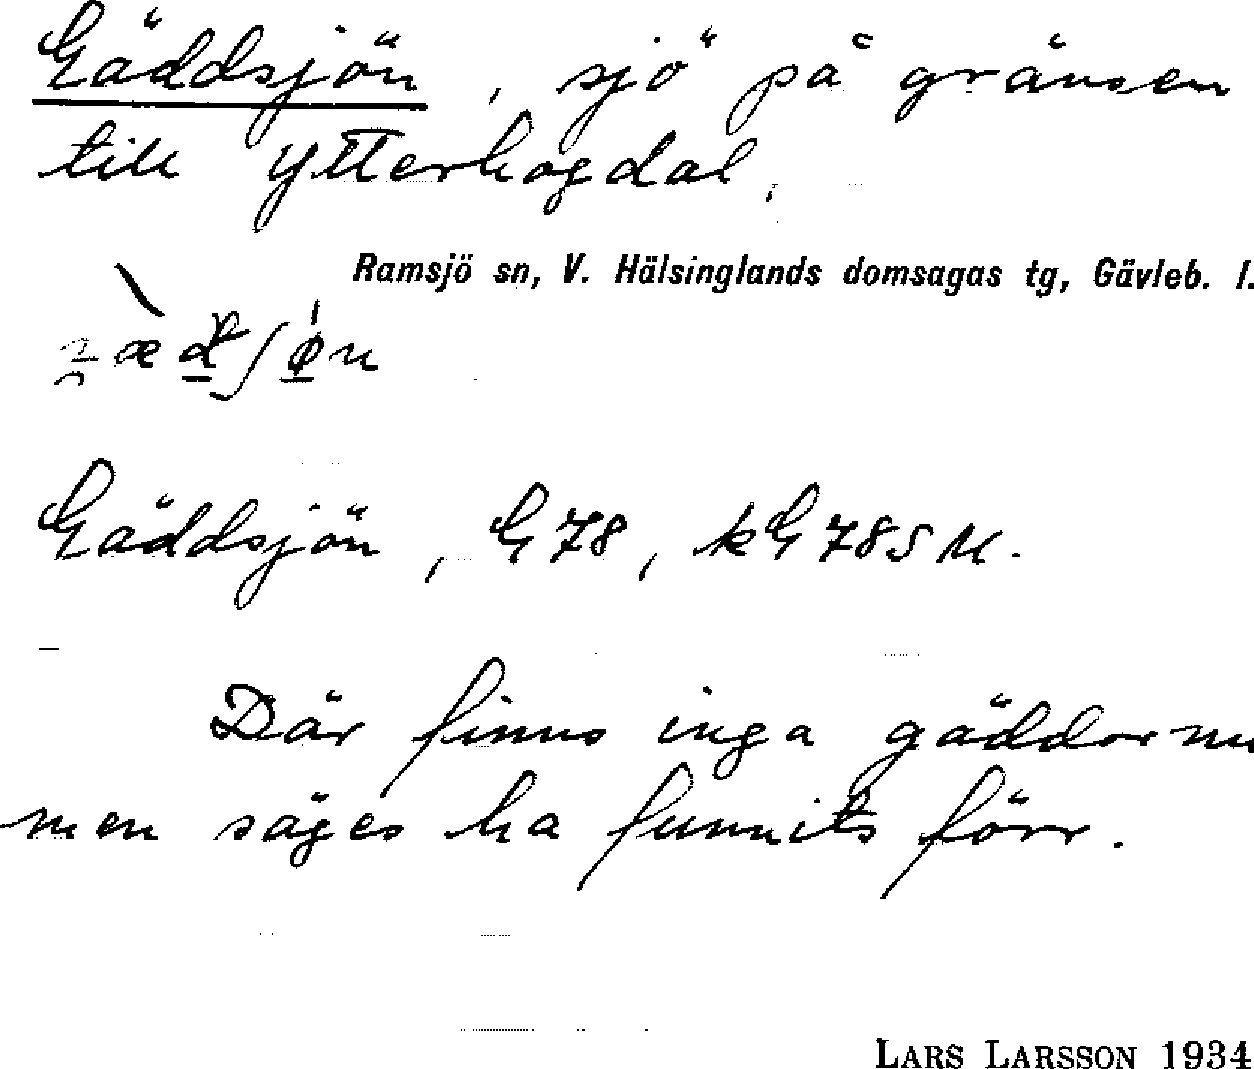 Gäddsjön, sjö på gränsen
till Ytterhogdal.
Ramsjö sn, V. Hälsinglands domsagas tg, Gävleb. l.
Gäddsjön, G 78, kG 78 SU.
Där finns inga gäddor nu
men säges ha funnits förr.
LARS LARSSON 1934